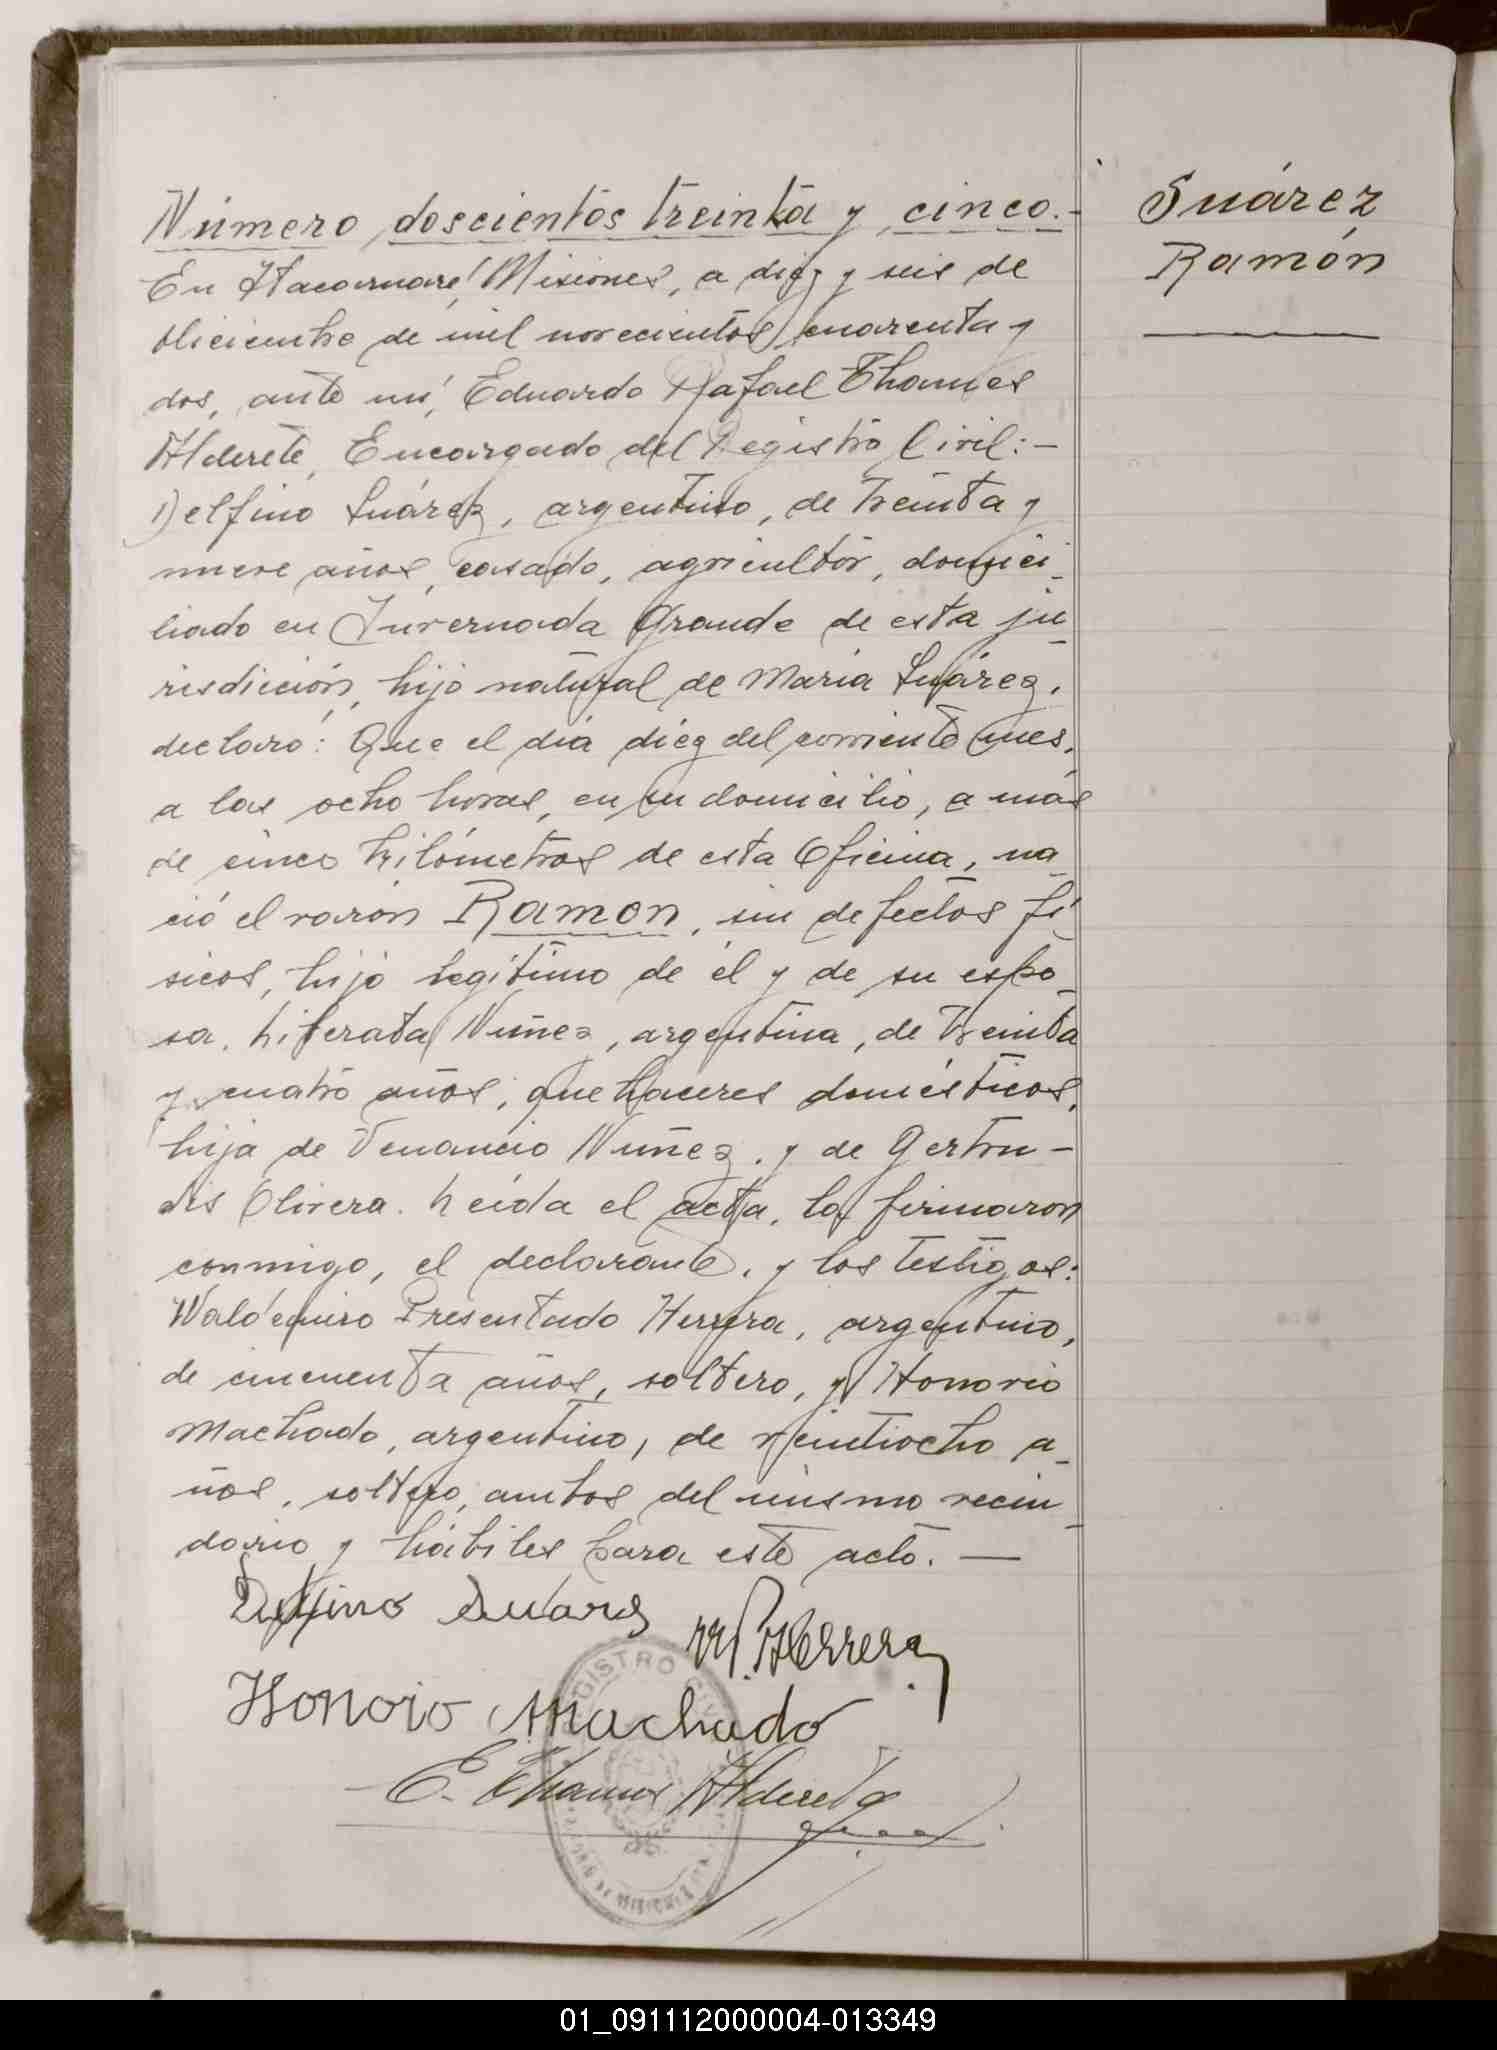 Número doscientos treinta y cinco.-
Suárez
Ramón
En Itacaruaré, Misiones, a diez y seis de
diciembre de mil novecientos cuarenta y
dos, ante mí, Eduardo Rafael Thames
Alderete, Encargado del Registro Civil:-
Delfino Suárez, argentino, de treinta y
nueve años, casado, agricultor, domici_
liado en Invernada Grande de esta ju_
risdición, hijo natural de María Suárez,
declaró: Que el día diez del corriente mes,
a las ocho horas, en su domicilio, a más
de cinco kilómetros de esta Oficina, na_
ció el varón Ramon, sin defectos fí_
sicos, hijo legítimo de él y de su espo_
sa, Liberata Nuñez, argentina, de treinta
y cuatro años, quehaceres domésticos,
hija de Venancio Nuñez, y de Gertru-
dis Olivera. Leída el acta, la firmaron
conmigo, el declarante, y los testigos:
Waldemiro Presentado Herrera, argentino,
de cincuenta años, soltero, y Honorio
Machado, argentino, de veintiocho a_
ños, soltero, ambos del mismo vecin_
dario y hábiles para este acto. —
Delfino Suares
W P. Herrera
Honoio Machado
E. Thames Alderete
REGISTRO CIVIL
01_091112000004-013349